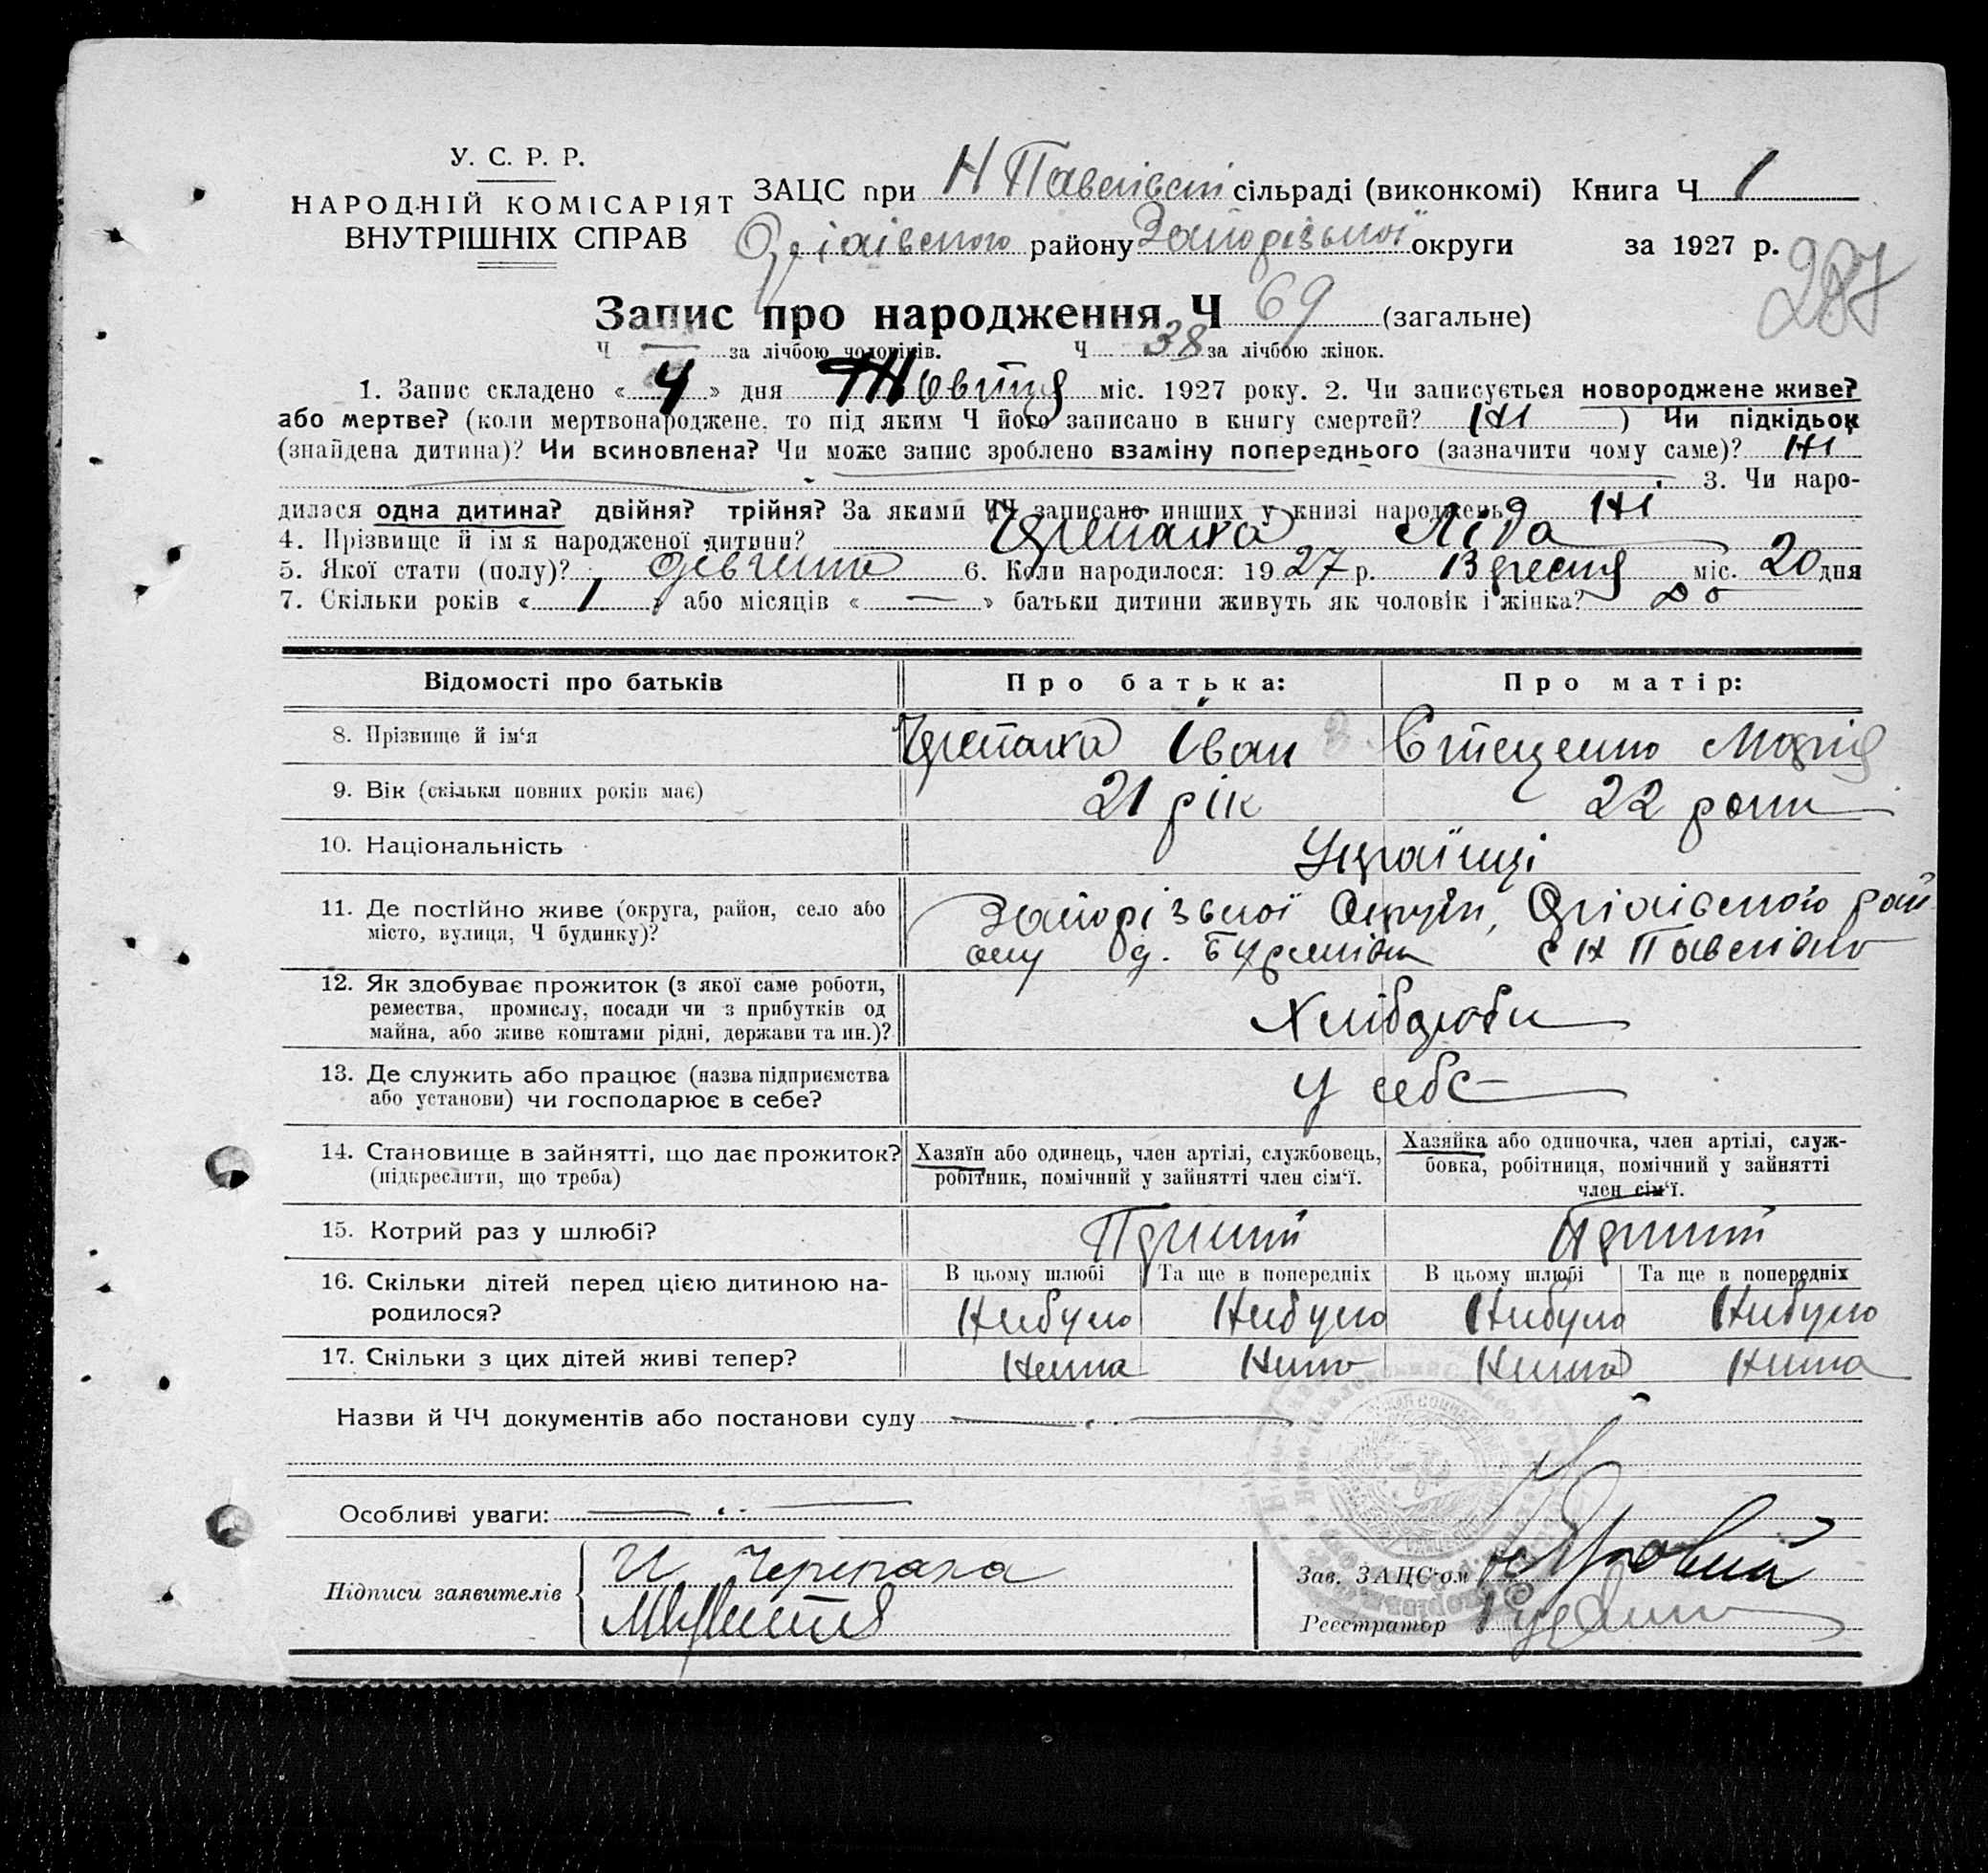 У. С. Р. Р.
НАРОДНІЙ КОМІСАРІЯТ
ВНУТРІШНІХ СПРАВ
ЗАЦС при Н Павлівські сільраді (виконкомі) Книга Ч 1
Оріхівського району Запорізької округи за 1927 р.
287
Запис про народження Ч 69 (загальне)
Ч — за лічбою чоловіків. Ч 38 за лічбою жінок.
1. Запис складено « 4 » дня Жовтня міс. 1927 року. 2. Чи записується новороджене живе?
або мертве? (коли мертвонароджене, то під яким Ч його записано в книгу смертей? Ні ) Чи підкідьок
(знайдена дитина)? Чи всиновлена? Чи може запис зроблено взаміну попереднього (зазначити чому саме)? Ні
3. Чи наро-
дилася одна дитина? двійня? трійня? За якими ЧЧ записано инших у книзі народжень? Ні
4. Прізвище й ім'я народженої дитини? Черепаха Ліда
5. Якої стати (полу)? дівчина 6. Коли народилося: 1927 р. Вересня міс. 20 дня
7. Скільки років « 1 » або місяців « — » батьки дитини живуть як чоловік і жінка?
Відомості про батьків Про батька: Про матір:
8. Прізвище й ім'я Черепаха Іван Євтушенко Марія
9. Вік (скільки повних років має) 21 рік 22 роки
10. Національність Українці
11. Де постійно живе (округа, район, село або Запорізької Округи, Оріхівського рай
місто, вулиця, Ч будинку)? ону с Н Павлівка
12. Як здобуває прожиток (з якої саме роботи,
ремества, промислу, посади чи з прибутків од Хлібороби
майна, або живе коштами рідні, держави та ин.)?
13. Де служить або працює (назва підприємства У себе
або установи) чи господарює в себе?
14. Становище в зайнятті, що дає прожиток? Хазяїн або одинець, член артілі, службовець, Хазяйка або одиночка, член артілі, служ-
(підкреслити, що треба) робітник, помічний у зайнятті член сім'ї. бовка, робітниця, помічний у зайнятті
член сім'ї.
15. Котрий раз у шлюбі? Перший Перший
16. Скільки дітей перед цією дитиною на- В цьому шлюбі Та ще в попередніх В цьому шлюбі Та ще в попередніх
родилося? Небуло Небуло Небуло Небуло
17. Скільки з цих дітей живі тепер? Нема Нема Нема Нема
Назви й ЧЧ документів або постанови суду
Особливі уваги:
Підписи заявителів И Черепаха
Зав. ЗАЦС'ом
Реєстратор